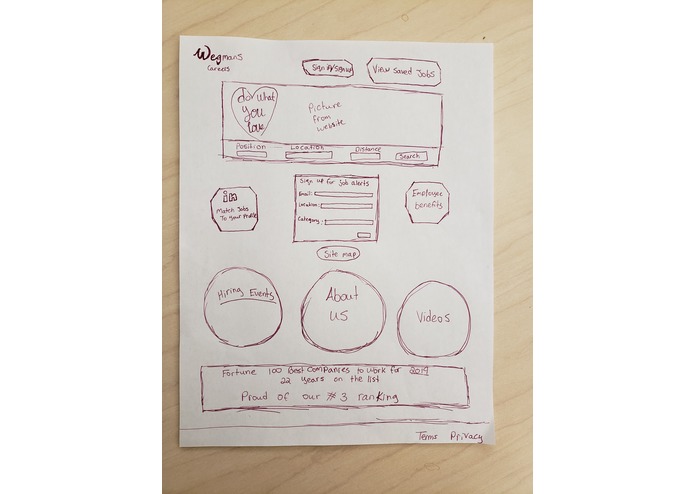 Wegmans
Careers
Sign in/Sign up
View Saved Jobs
do what
you
love
Picture
from
website
Position
Location
Distance
Search
in
Match Jobs
To your profile
Sign up for job alerts
Email:
Location:
Category:
Employee
benefits
Site map
Hiring Events
About
us
Videos
Fortune 100 Best Companies to work for 2019
22 years on the list
Proud of our #3 ranking
Terms Privacy